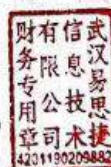 武汉易思捷
信息技术
有限公司
财务专用章
4201190209